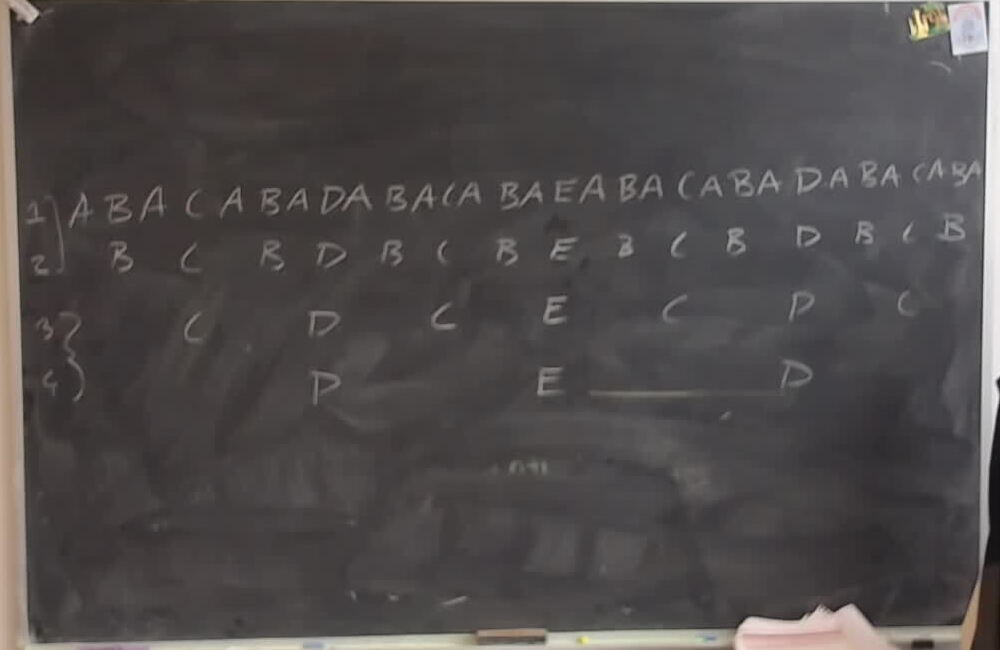 1) A B A C A B A D A B A C A B A E A B A C A B A D A B A C A B A
2) B C B D B C B E B C B D B C B
3) C D C E C D C
4) D E D